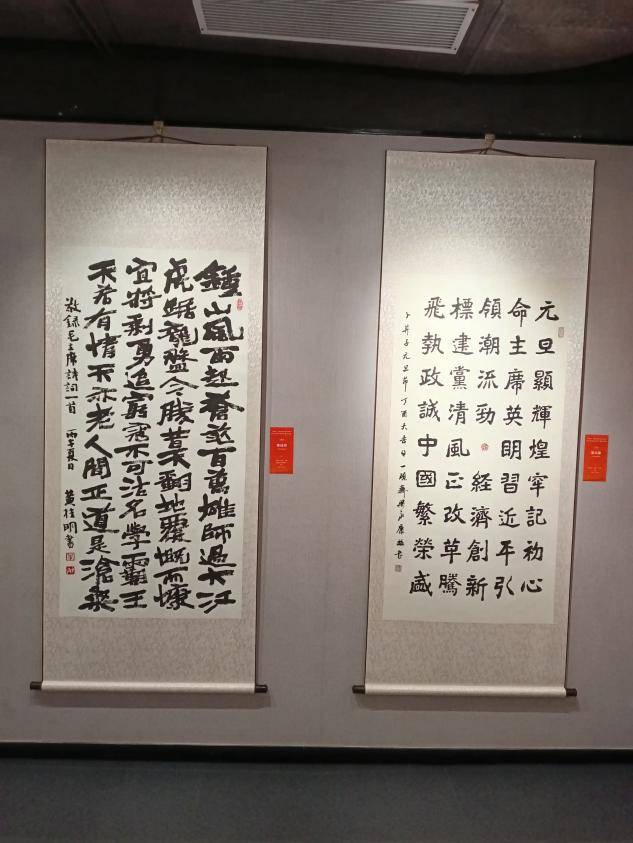 鐘山風雨起蒼黃百萬雄師過大江
虎踞龍盤今勝昔天翻地覆慨而慷
宜將剩勇追窮寇不可沽名學霸王
天若有情天亦老人間正道是滄桑
敬錄毛主席詩詞一首 丙午夏日 黃桂明書
元旦顯輝煌牢記初心
命主席英明習近平引
領潮流勁 經濟創新
標建黨清風正改革騰
飛執政誠中國繁榮盛
卜算子元旦節丁酉大吉日